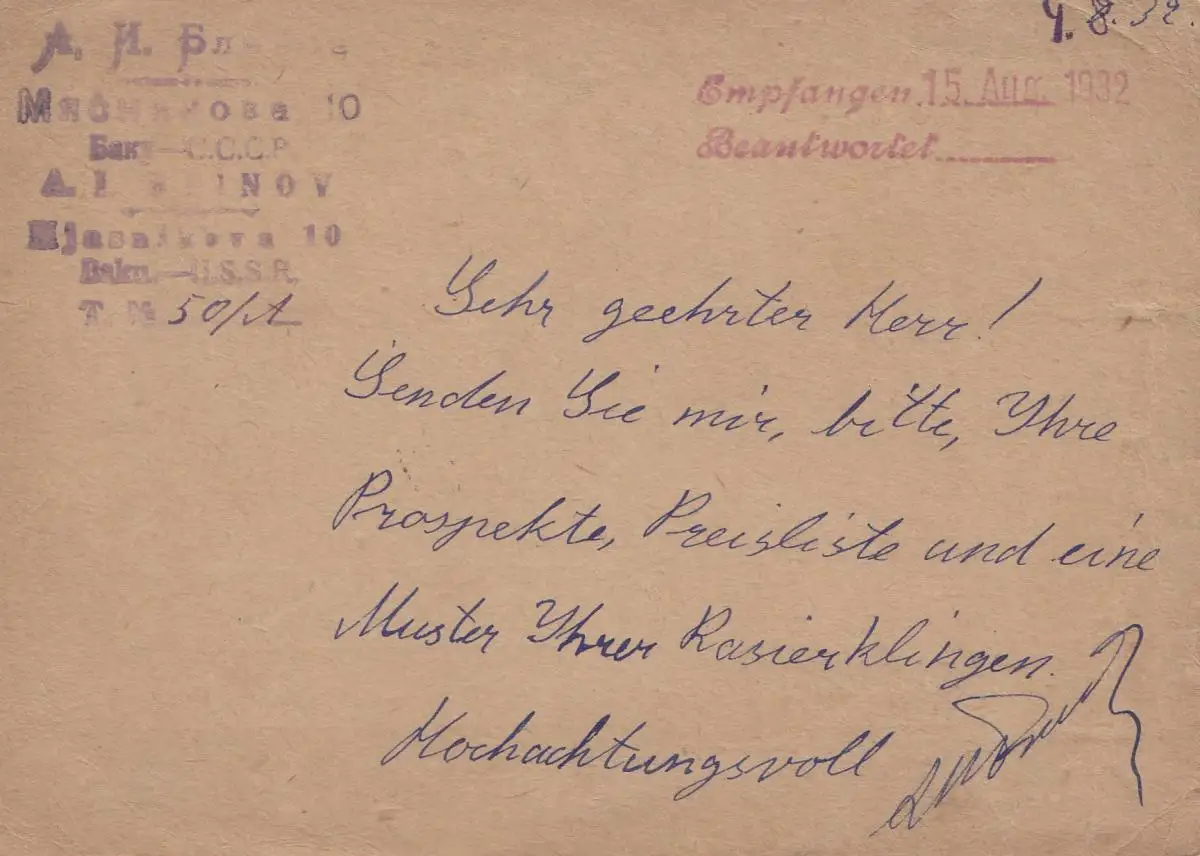 А. И.
10
Баку—С.С.С.Р.
A. I.
Mjasnikova 10
Baku.—U.S.S.R.
T. № 50/A
9. 8. 32.
Empfangen 15. Aug. 1932
Beantwortet
Sehr geehrter Herr!
Senden Sie mir, bitte, Yhre
Prospekte, Preisliste und eine
Muster Yhrer Rasierklingen.
Hochachtungsvoll